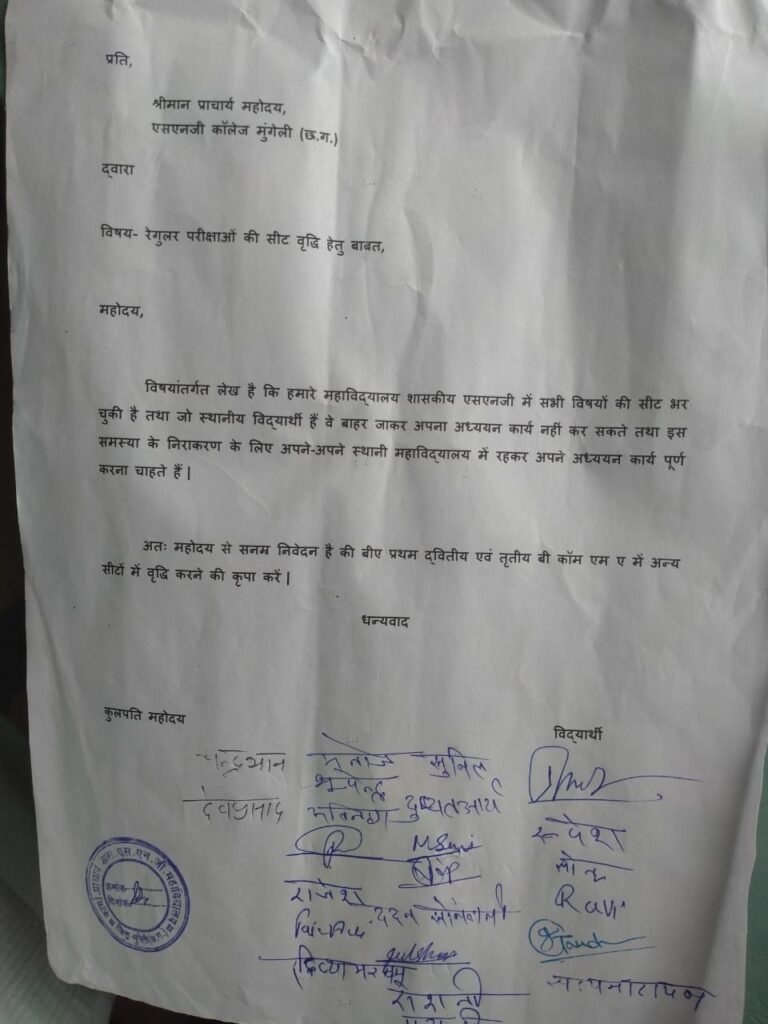 प्रति,
श्रीमान प्राचार्य महोदय,
एसएनजी कॉलेज मुंगेली (छ.ग.)
द्वारा
विषय- रेगुलर परीक्षाओं की सीट वृद्धि हेतु बाबत,
महोदय,
विषयांतर्गत लेख है कि हमारे महाविद्यालय शासकीय एसएनजी में सभी विषयों की सीट भर
चुकी है तथा जो स्थानीय विद्यार्थी हैं वे बाहर जाकर अपना अध्ययन कार्य नहीं कर सकते तथा इस
समस्या के निराकरण के लिए अपने-अपने स्थानी महाविद्यालय में रहकर अपने अध्ययन कार्य पूर्ण
करना चाहते हैं |
अतः महोदय से सनम्र निवेदन है की बीए प्रथम द्वितीय एवं तृतीय बी कॉम एम ए में अन्य
सीटों में वृद्धि करने की कृपा करें |
धन्यवाद
कुलपति महोदय
विद्यार्थी
चन्द्रभान
सुनिल
देवप्रसाद
राजेश
Ravi
gulshan
सत्यनारायण
क्रमांक
दिनांक